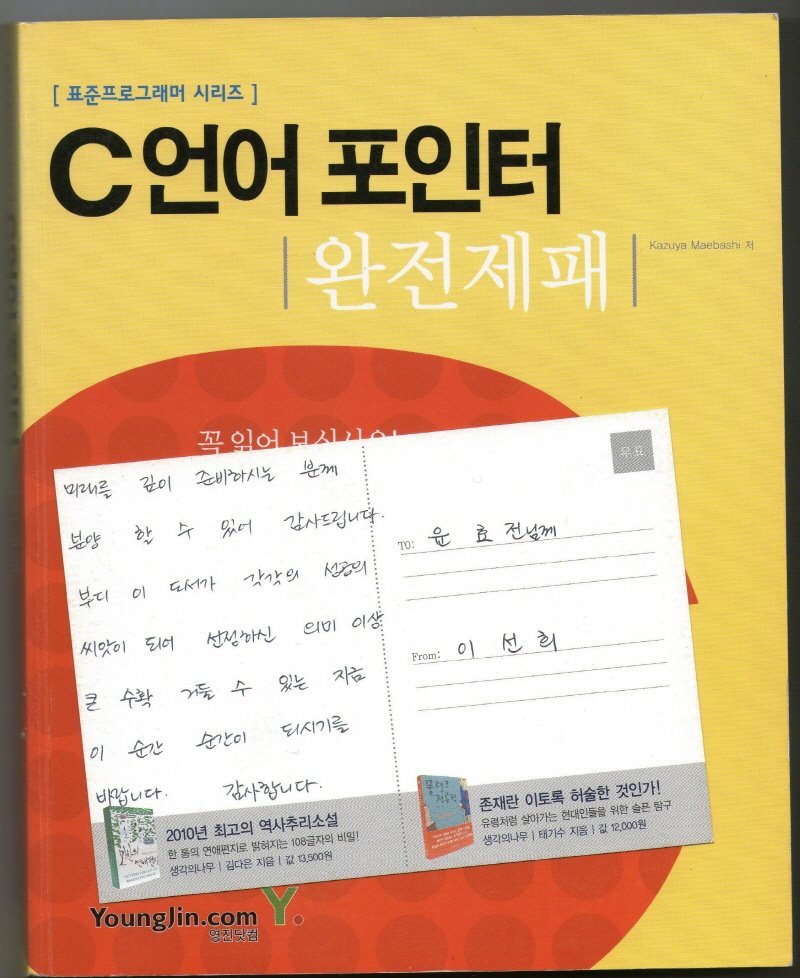 [ 표준프로그래머 시리즈 ]
C 언어 포인터
완전제패
Kazuya Maebashi 저
꼭 읽어 보십시오!
미래를 깊이 준비하시는 분께
분양 할 수 있어 감사드립니다.
부디 이 도서가 각각의 성공의
씨앗이 되어 선정하신 의미 이상
큰 수확 거둘 수 있는 지금
이 순간 순간이 되시기를
바랍니다. 감사합니다.
우표
TO: 윤 효 전님께
From: 이 선 희
2010년 최고의 역사추리소설
한 통의 연애편지로 밝혀지는 108글자의 비밀!
생각의나무 | 김다은 지음 | 값 13,500원
존재란 이토록 허술한 것인가!
유령처럼 살아가는 현대인들을 위한 슬픈 탐구
생각의나무 | 태기수 지음 | 값 12,000원
YoungJin.com Y.
영진닷컴